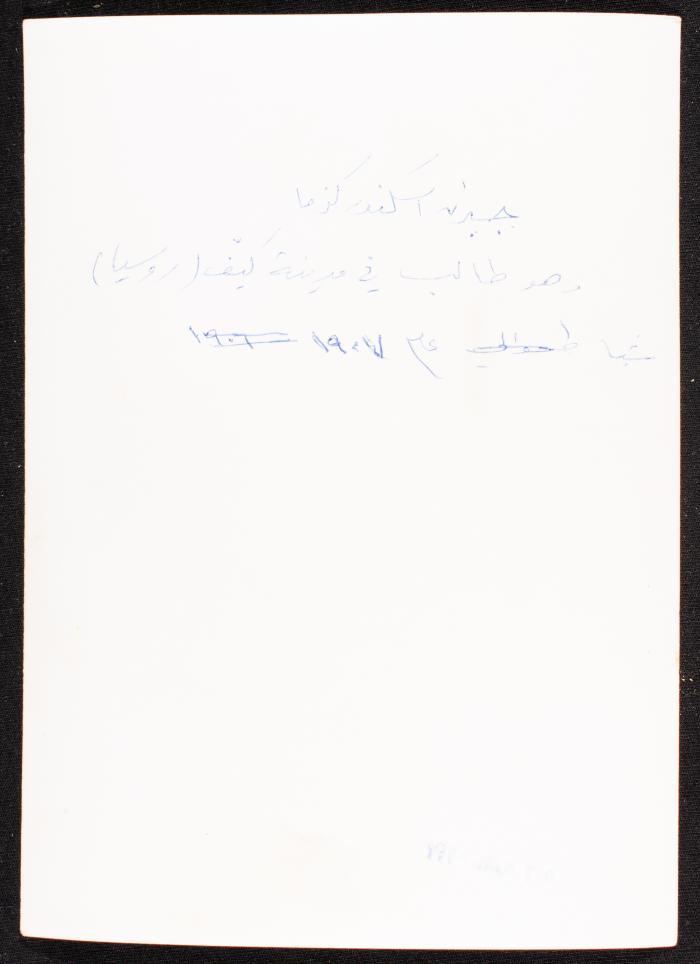 جبران اسكندر كزما
وهو طالب في مدينة كيّف (روسيا)
شباط حوالي عام ١٩٠٧ ١٩٠٦